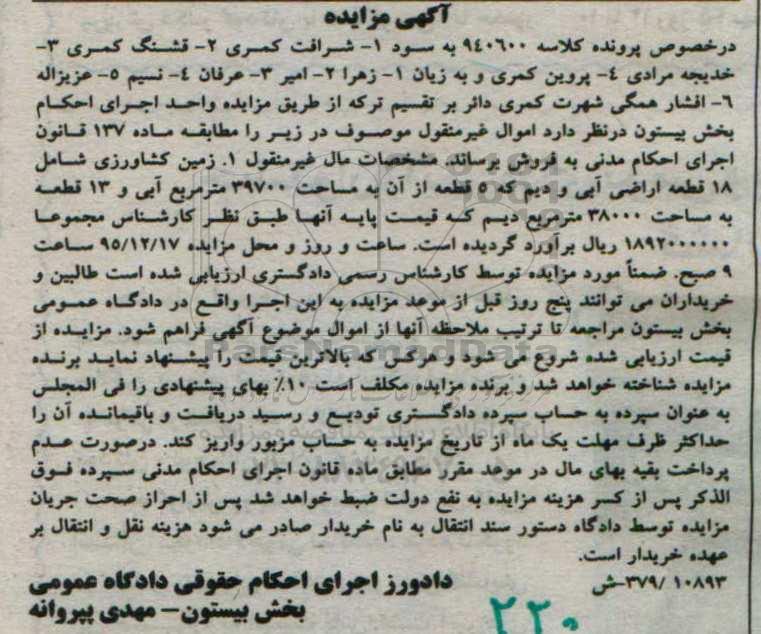 آگهی مزایده
درخصوص پرونده کلاسه ۹۴۰۶۰۰ به سود ۱- شرافت کمری ۲- قشنگ کمری ۳-
خدیجه مرادی ۴- پروین کمری و به زیان ۱- زهرا ۲- امیر ۳- عرفان ۴- نسیم ۵- عزیزاله
۶- افشار همگی شهرت کمری دائر بر تقسیم ترکه از طریق مزایده واحد اجرای احکام
بخش بیستون درنظر دارد اموال غیرمنقول موصوف در زیر را مطابقه ماده ۱۳۷ قانون
اجرای احکام مدنی به فروش برساند. مشخصات مال غیرمنقول ۱. زمین کشاورزی شامل
۱۸ قطعه اراضی آبی و دیم که ۵ قطعه از آن به مساحت ۳۹۷۰۰ مترمربع آبی و ۱۳ قطعه
به مساحت ۳۸۰۰۰ مترمربع دیم که قیمت پایه آنها طبق نظر کارشناس مجموعا
۱۸۹۲۰۰۰۰۰۰ ریال برآورد گردیده است. ساعت و روز و محل مزایده ۹۵/۱۲/۱۷ ساعت
۹ صبح. ضمناً مورد مزایده توسط کارشناس رسمی دادگستری ارزیابی شده است طالبین و
خریداران می توانند پنج روز قبل از موعد مزایده به این اجرا واقع در دادگاه عمومی
بخش بیستون مراجعه تا ترتیب ملاحظه آنها از اموال موضوع آگهی فراهم شود. مزایده از
قیمت ارزیابی شده شروع می شود و هرکس که بالاترین قیمت را پیشنهاد نماید برنده
مزایده شناخته خواهد شد و برنده مزایده مکلف است ۱۰٪ بهای پیشنهادی را فی المجلس
به عنوان سپرده به حساب سپرده دادگستری تودیع و رسید دریافت و باقیمانده آن را
حداکثر ظرف مهلت یک ماه از تاریخ مزایده به حساب مزبور واریز کند. درصورت عدم
پرداخت بقیه بهای مال در موعد مقرر مطابق ماده قانون اجرای احکام مدنی سپرده فوق
الذکر پس از کسر هزینه مزایده به نفع دولت ضبط خواهد شد پس از احراز صحت جریان
مزایده توسط دادگاه دستور سند انتقال به نام خریدار صادر می شود هزینه نقل و انتقال بر
عهده خریدار است.
۱۰۸۹۳ /۳۷۹-ش
دادورز اجرای احکام حقوقی دادگاه عمومی
بخش بیستون- مهدی پیروانه
۲۲۰
ParsNamadData